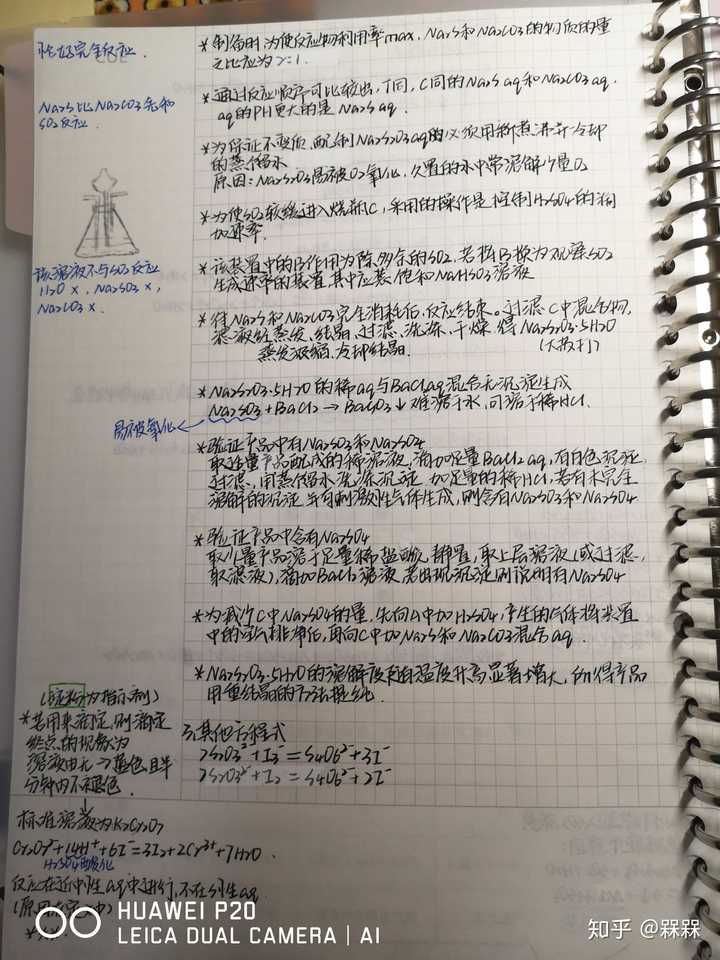 恰好完全反应.
Na2S比Na2CO3先和
SO2反应
该溶液不与SO2反应
H2O ×, Na2SO3 ×,
Na2CO3 ×.
(淀粉为指示剂)
*若用来滴定,则滴定
终点的现象为
溶液由无→蓝色且半
分钟内不褪色.
标准溶液为K2Cr2O7
Cr2O7²⁻+14H⁺+6I⁻=3I2+2Cr³⁺+7H2O.
H2SO4酸化
反应在近中性aq中进行,不在碱性aq.
*制备时,为使反应物利用率max, Na2S和Na2CO3的物质的量
之比应为2:1.
*通过反应顺序可比较出,T同,C同的Na2S aq和Na2CO3 aq.
aq的PH更大的是Na2S aq.
*为保证不变质,配制Na2S2O3 aq的必须用新煮沸并冷却
的蒸馏水
原因:Na2S2O3易被O2氧化,久置的水中常溶解少量O2
*为使SO2较缓进入烧瓶C,采用的操作是控制H2SO4的滴
加速率.
*该装置中的B作用为除多余的SO2,若将B换为观察SO2
生成速率的装置,其中应装饱和NaHSO3溶液
*待Na2S和Na2CO3完全消耗后,反应结束。过滤C中混合物,
滤液经蒸发、结晶、过滤、洗涤、干燥,得Na2S2O3·5H2O
蒸发浓缩,冷却结晶. (大苏打)
*Na2S2O3·5H2O的稀aq与BaCl2 aq混合无沉淀生成
Na2SO3+BaCl2→BaSO3↓难溶于水,可溶于稀HCl.
易被氧化←
*验证产品中有Na2SO3和Na2SO4
取适量产品配成的稀溶液,滴加足量BaCl2 aq,有白色沉淀,
过滤,用蒸馏水洗涤沉淀,加足量的稀HCl,若有未完全
溶解的沉淀并有刺激性气体生成,则含有Na2SO3和Na2SO4
*验证产品中含有Na2SO4
取少量产品溶于足量稀盐酸,静置,取上层溶液(或过滤,
取滤液),滴加BaCl2溶液,若出现沉淀则说明有Na2SO4
*为减少C中Na2SO4的量,先向A中加H2SO4,产生的气体将装置
中的空气排净后,再向C中加Na2S和Na2CO3混合aq.
*Na2S2O3·5H2O的溶解度随温度升高显著增大,所得产品
用重结晶的方法提纯.
3.其他方程式
2S2O3²⁻+I3⁻=S4O6²⁻+3I⁻
2S2O3²⁻+I2=S4O6²⁻+2I⁻
HUAWEI P20
LEICA DUAL CAMERA | AI
知乎 @槑槑